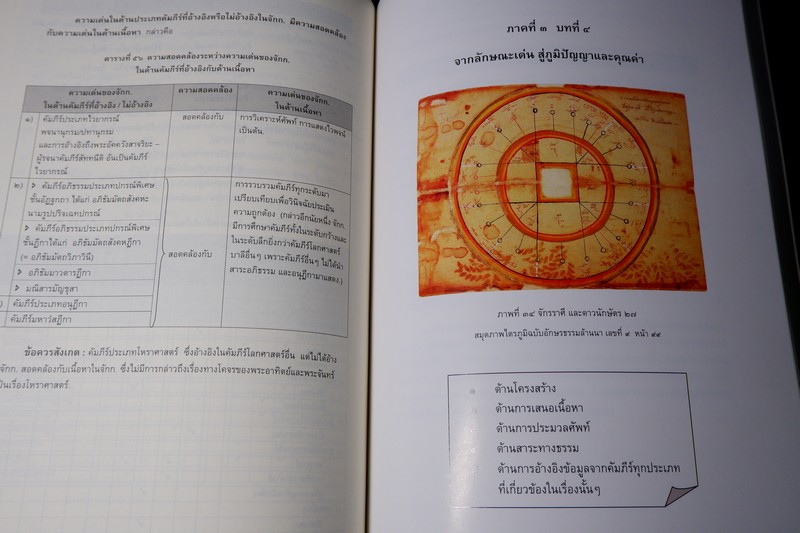 ความเด่นในด้านประเภทคัมภีร์ที่อ้างอิงหรือไม่อ้างอิงในจักก. มีความสอดคล้อง
กับความเด่นในด้านเนื้อหา กล่าวคือ
ตารางที่ ๕๖ ความสอดคล้องระหว่างความเด่นของจักก.
ในด้านคัมภีร์ที่อ้างอิงกับด้านเนื้อหา
ความเด่นของจักก.
ในด้านคัมภีร์ที่อ้างอิง / ไม่อ้างอิง
ความสอดคล้อง
ความเด่นของจักก.
ในด้านเนื้อหา
๑) คัมภีร์ประเภทไวยากรณ์
พจนานุกรม/ปทานุกรม
และการอ้างอิงถึงพระอัคควังสาจริยะ –
ผู้รจนาคัมภีร์สัททนีติ อันเป็นคัมภีร์
ไวยากรณ์
สอดคล้องกับ
การวิเคราะห์ศัพท์ การแสดงไวพจน์
เป็นต้น.
๒) คัมภีร์อภิธรรมประเภทปกรณ์พิเศษ
ชั้นอัฏฐกถา ได้แก่ อภิธัมมัตถสังคหะ
นามรูปปริจเฉทปกรณ์
คัมภีร์อภิธรรมประเภทปกรณ์พิเศษ
ชั้นฎีกาได้แก่ อภิธัมมัตถสังคหฎีกา
(= อภิธัมมัตถวิภาวินี)
อภิธัมมาวตารฎีกา
มณิสารมัญชูสา
) คัมภีร์ประเภทอนุฎีกา
คัมภีร์มหาวังสฎีกา
สอดคล้องกับ
การรวบรวมคัมภีร์ทุกระดับมา
เปรียบเทียบเพื่อวินิจฉัยประเมิน
ความถูกต้อง (กล่าวอีกนัยหนึ่ง จักก.
มีการศึกษาคัมภีร์ทั้งในระดับกว้างและ
ในระดับลึกยิ่งกว่าคัมภีร์โลกศาสตร์
บาลีอื่นๆ เพราะคัมภีร์อื่นๆ ไม่ได้นำ
สาระอภิธรรม และอนุฎีกามาแสดง.)
ข้อควรสังเกต : คัมภีร์ประเภทโหราศาสตร์ ซึ่งอ้างอิงในคัมภีร์โลกศาสตร์อื่น แต่ไม่ได้อ้าง
จักก. สอดคล้องกับเนื้อหาในจักก. ซึ่งไม่มีการกล่าวถึงเรื่องทางโคจรของพระอาทิตย์และพระจันทร์
เป็นเรื่องโหราศาสตร์.
ภาคที่ ๓ บทที่ ๔
จากลักษณะเด่น สู่ภูมิปัญญาและคุณค่า
ภาพที่ ๓๔ จักรราศี และดาวนักษัตร ๒๗
สมุดภาพไตรภูมิฉบับอักษรธรรมล้านนา เลขที่ ๙ หน้า ๔๙
ด้านโครงสร้าง
ด้านการเสนอเนื้อหา
ด้านการประมวลศัพท์
ด้านสาระทางธรรม
ด้านการอ้างอิงข้อมูลจากคัมภีร์ทุกประเภท
ที่เกี่ยวข้องในเรื่องนั้นๆ